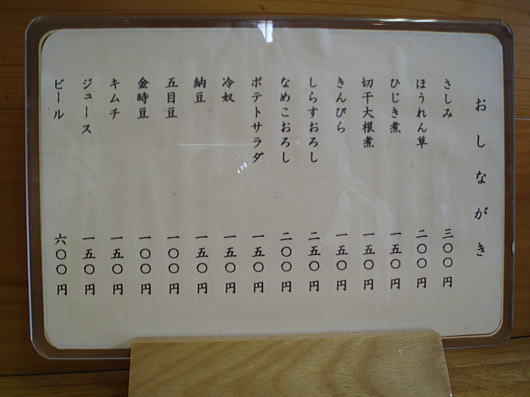 おしながき
さしみ 三〇〇円
ほうれん草 二〇〇円
ひじき煮 一五〇円
切干大根煮 一五〇円
きんぴら 一五〇円
しらすおろし 二五〇円
なめこおろし 二〇〇円
ポテトサラダ 一五〇円
冷奴 一五〇円
納豆 一五〇円
五目豆 一〇〇円
金時豆 一〇〇円
キムチ 一五〇円
ジュース 一五〇円
ビール 六〇〇円